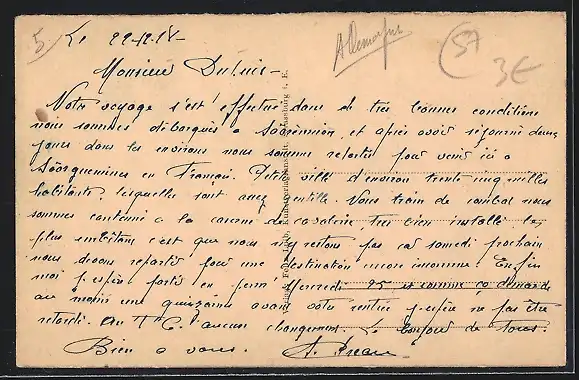 5 Le 22-12-18 Allemagne 57
3€
Monsieur Dubuis -
Notre voyage s'est effectué dans de très bonnes conditions
nous sommes débarqués à Saarunion, et après avoir séjourné deux
jours dans les environs nous sommes repartis pour venir ici à
Saarguemines en Français. Petite ville d'environ trente cinq milles
habitants, lesquelles sont assez gentille. Notre train de combat nous
sommes cantonné à la caserne de cavalerie, très bien installé. le
plus embêtant c'est que nous n'y restons pas car samedi prochain
nous devons repartir pour une destination encore inconnue. Enfin
moi j'espère partir en perm' mercredi 25 et comme ça demande
au moins une quinzaine avant notre rentrée j'espère ne pas être
retardé. Au T. C. aucun changement. Le bonjour de tous.
Bien à vous. A.